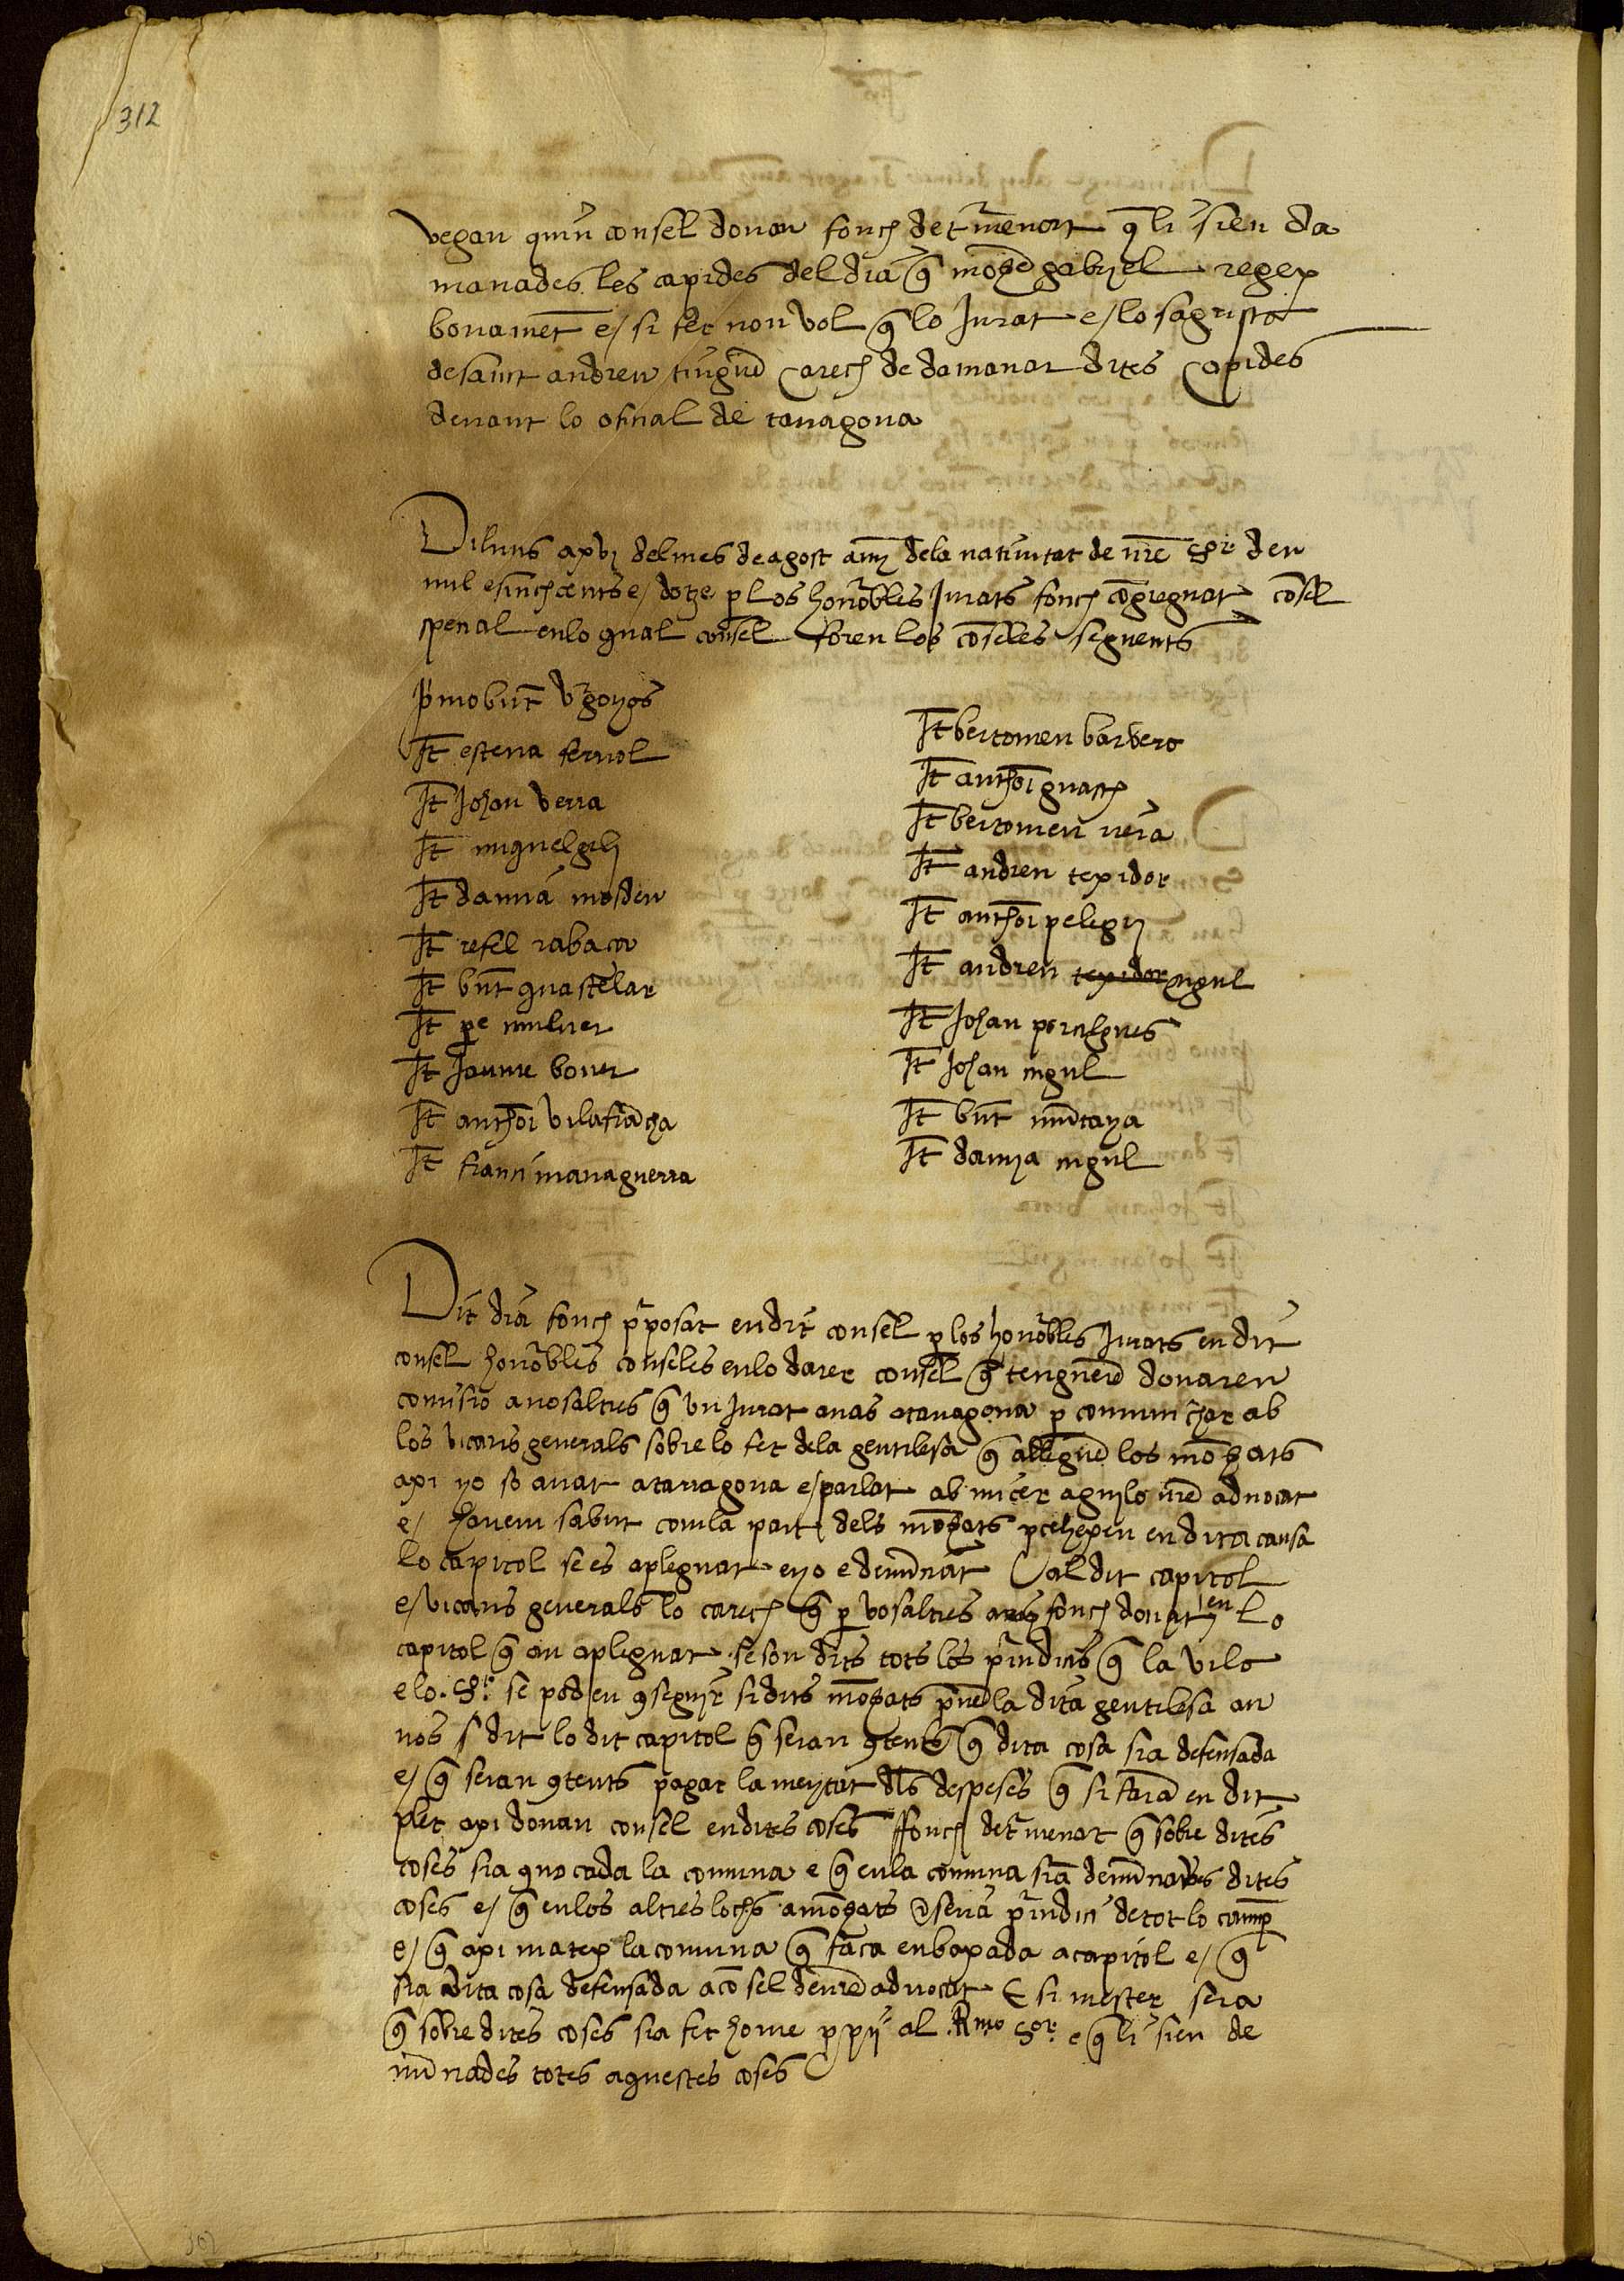 312
vegau quin consel donau fonch det'menat q̄ li sien da
manades les capides del dia q̄ mōse gabriel regex
bonamēt e/ si fer non vol q̄ lo Jurat e/ lo sagrista
de sant andreu tingue carech de damanar dites capides
denant lo oficial de tarragona
Diluns a xvj del mes de agost any de la natiuitat de nr̄e Sor deu
mil e sinch cents e/ dotze p los honorables Jurats fonch cōgreguat cōsel
special en lo qual consel foren los cōseles seguents
p'mo bnt v'gonyos
It esteua ferriol
It Johan verra
It miquel gili
It damiā mosden
It refel rabaca
It bnt quastelar
It pe muluer
It Jaume bouer
It anthoi vilafrācha
It franci managuerra
It bertomeu barbera
It anthoi guasch
It bertomeu riera
It andreu texidor
It anthoi pelegri
It andreu texidor ngul
It Johan porcalgues
It Johan ngul
It bnt mūtanya
It damia ngul
Dit dia fonch p'posat en dit consel p los honorables Jurats en dit
consel honorables conseles en lo darer consel q̄ tenguerē donaren
comisio a nosaltres q̄ vn Jurat anas a tarragona p comunichar ab
los vicaris generals sobre lo fet de la gentilesa q̄ allegue los mōgats
axi yo so anat a tarragona e/ parlat ab micer aguilo nr̄e aduocat
e/ hauem sabut com la part dels mōgats pcehexen en dita causa
lo capitol se es aplegnat e yo e denūciat al dit capitol
e/ vicaris generals lo carech q̄ p vosaltres fonch donat en lo
capitol q̄ an aplegnat se son dits tots los p'iudicis q̄ la vila
e lo Sor se poden cseguir si dits mōgats p'ue la dita gentilesa an
nos dit lo dit capitol q̄ seran ctents q̄ dita cosa sia defensada
e/ q̄ seran ctents pagar la meytat dls despeses q̄ si farā en dit
plet axi donau consel en dites coses ffonch det'menat q̄ sobre dites
coses sia quocada la comuna e q̄ en la comuna siā denūciades dites
coses e/ q̄ en los altres lochs a mōgats seria p'iudici de tot lo camp
e/ q̄ axi matex la comuna q̄ faca enbaxada a capitol e/ q̄
sia dita cosa defensada a cōsel de nr̄e aduocat E si mester sera
q̄ sobre dites coses sia fet home ppij al Rmo Sor e q̄ li sien de
nūciades totes aquestes coses